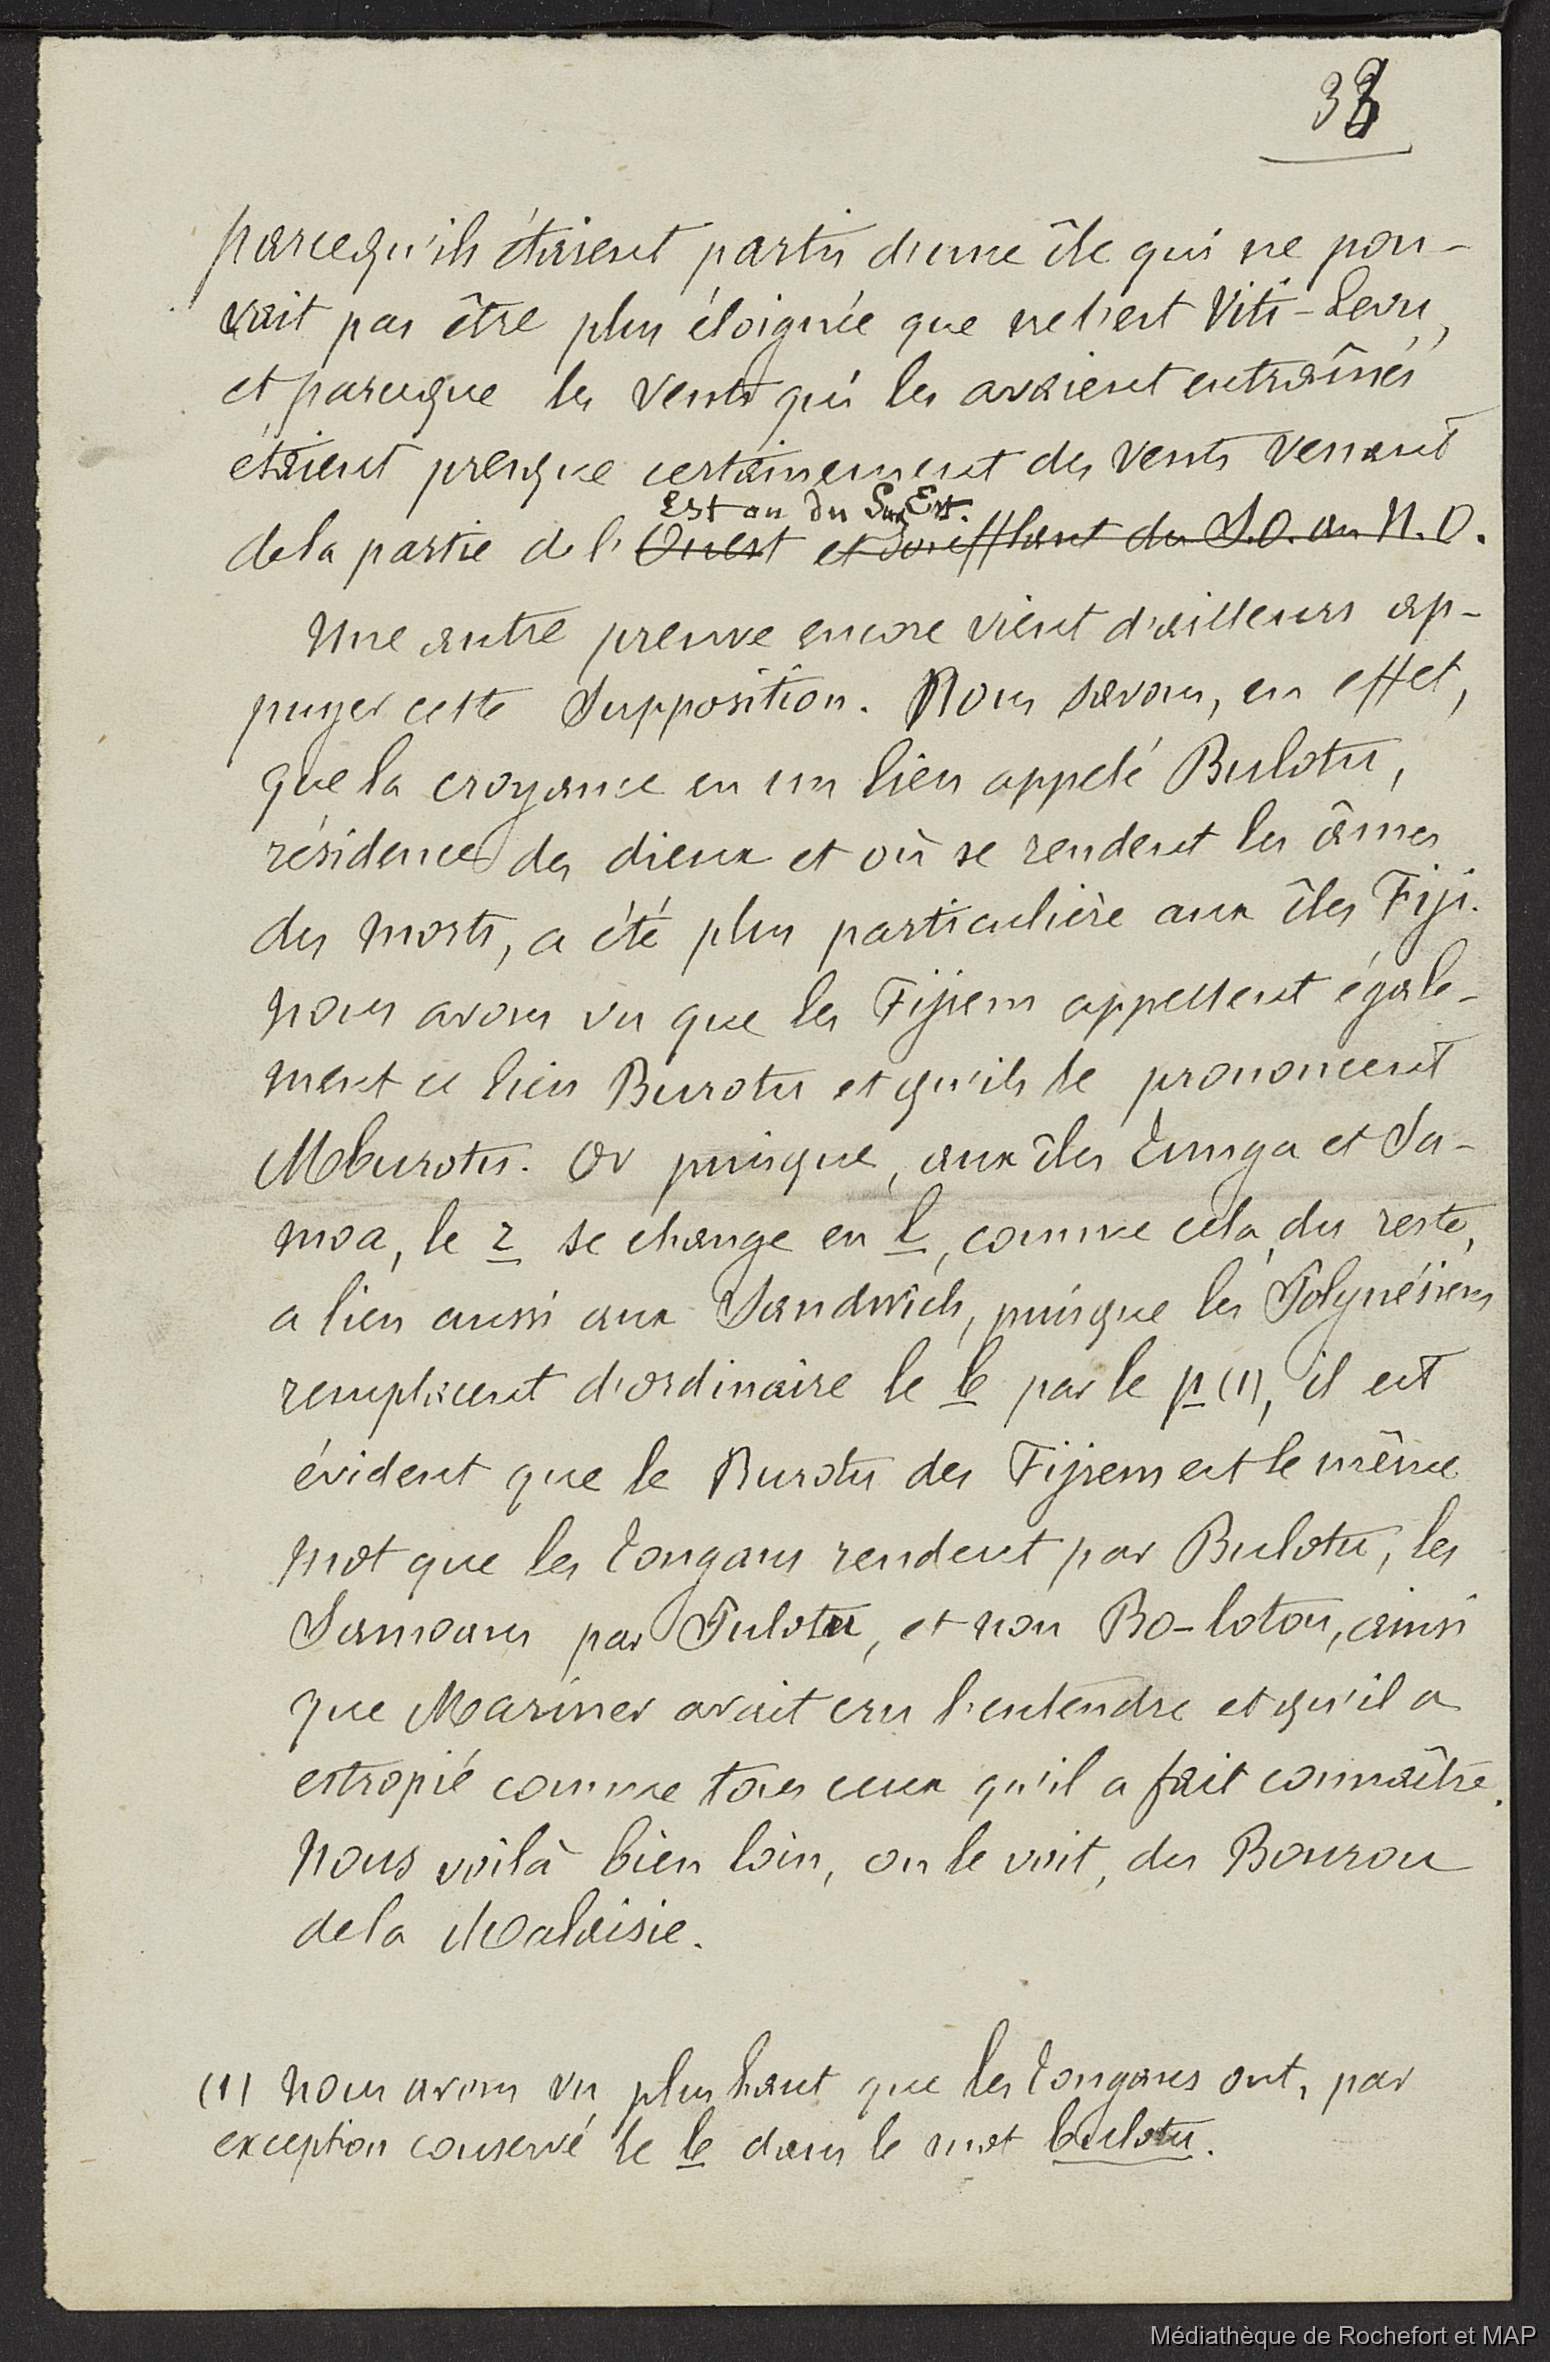 33
parcequ'ils étaient partis d'une île qui ne pou-
vait pas être plus éloignée que ne l'est Viti-Levu,
et parceque les vents qui les avaient entraînés
étaient presque certainement des vents venant
Est ou du Sud Est.
de la partie de l'Ouest et soufflant du S.O. au N.O.
Une autre preuve encore vient d'ailleurs ap-
puyer cette supposition. Nous savons, en effet,
que la croyance en un lieu appelé Bulotu,
résidence des dieux et où se rendent les âmes
des morts, a été plus particulière aux îles Fiji.
Nous avons vu que les Fijiens appellent égale-
ment ce lieu Burotu et qu'ils le prononcent
Mburotu. Or puisque, aux îles Tunga et Sa-
moa, le r se change en l, comme cela, du reste,
a lieu aussi aux Sandwich, puisque les Polynésiens
remplacent d'ordinaire le b par le p (1), il est
évident que le Burotu des Fijiens est le même
mot que les Tongans rendent par Bulotu, les
Samoans par Pulotu, et non Bo-lotou, ainsi
que Mariner avait cru l'entendre et qu'il a
estropié comme tous ceux qu'il a fait connaître.
Nous voilà bien loin, on le voit, du Bourou
de la Malaisie.
(1) Nous avons vu plus haut que les Tongans ont, par
exception conservé le b dans le mot bulotu.
Médiathèque de Rochefort et MAP